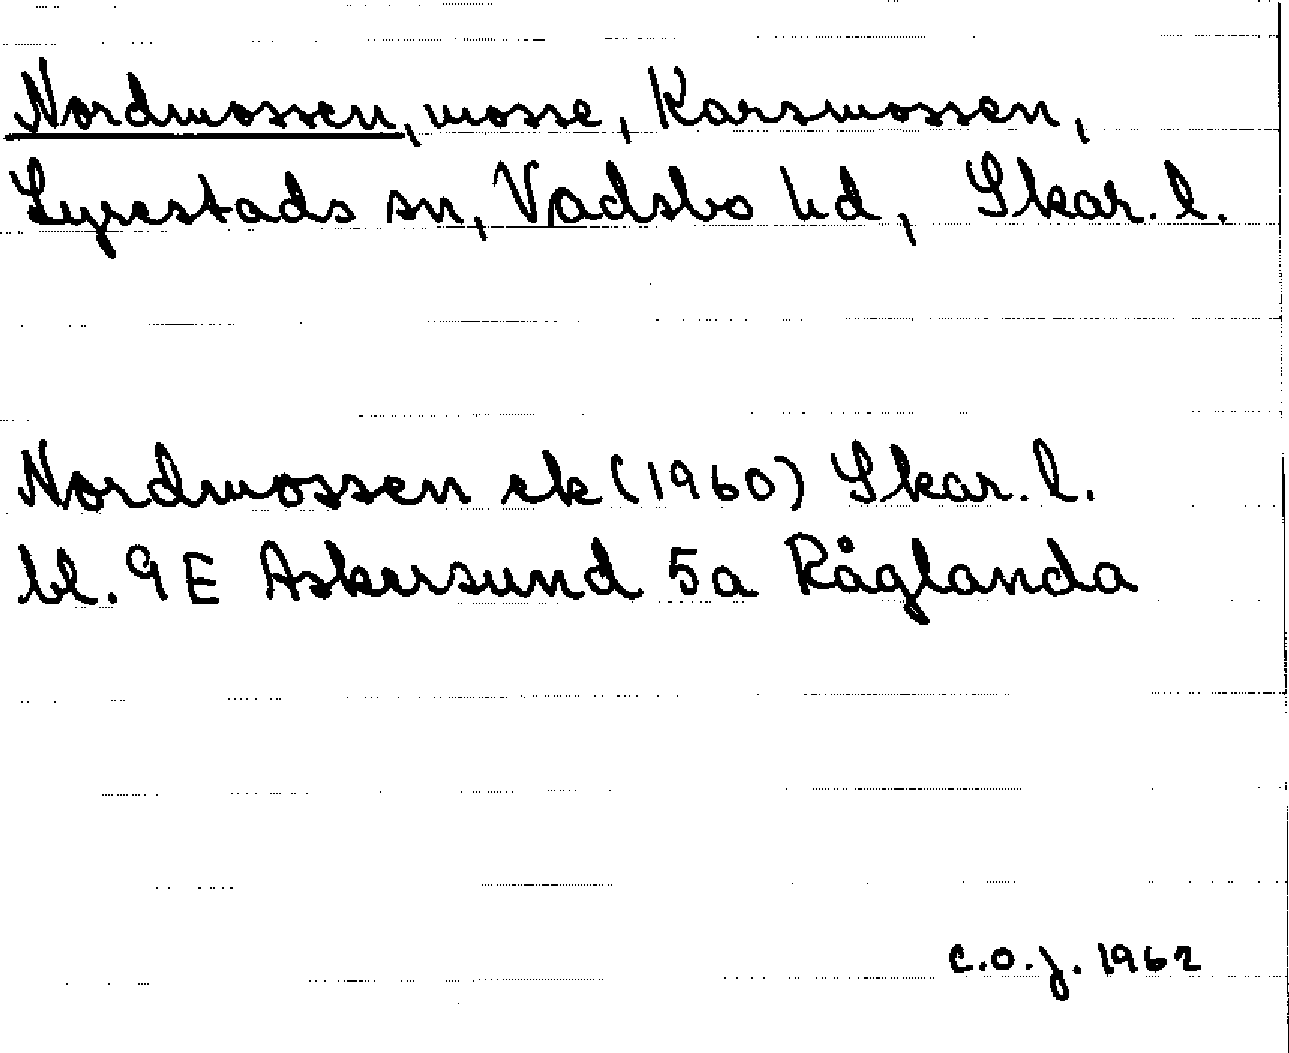 Nordmossen, mosse, Karsmossen,
Lyrestads sn, Vadsbo hd, Skar. l.
Nordmossen ek (1960) Skar. l.
bl. 9E Askersund 5a Råglanda
C.O.J. 1962